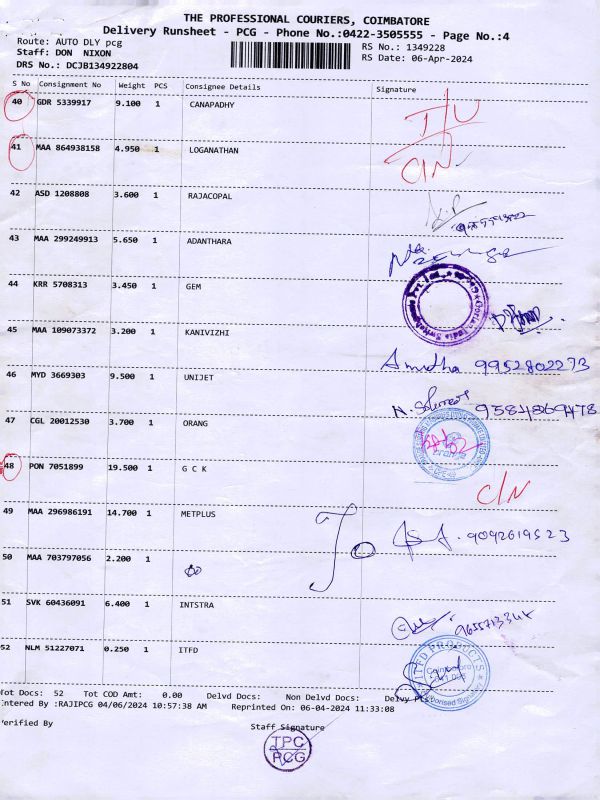 THE PROFESSIONAL COURIERS, COIMBATORE
Delivery Runsheet - PCG - Phone No.:0422-3505555 - Page No.:4
Route: AUTO DLY pcg
RS No.: 1349228
Staff: DON NIXON
RS Date: 06-Apr-2024
DRS No.: DCJB134922804
S No Consignment No Weight PCS Consignee Details Signature
40 GDR 5339917 9.100 1 CANAPADHY
41 MAA 864938158 4.950 1 LOGANATHAN
C/N
42 ASD 1208808 3.600 1 RAJACOPAL
43 MAA 299249913 5.650 1 ADANTHARA
44 KRR 5708313 3.450 1 GEM
45 MAA 109073372 3.200 1 KANIVIZHI
Amutha 9952802273
46 MYD 3669303 9.500 1 UNIJET
47 CGL 20012530 3.700 1 ORANG
48 PON 7051899 19.500 1 G C K
C/N
49 MAA 296986191 14.700 1 METPLUS
9092619523
50 MAA 703797056 2.200 1
51 SVK 60436091 6.400 1 INTSTRA
52 NLM 51227071 0.250 1 ITFD
ITFD PRODUCTS
Tot Docs: 52 Tot COD Amt: 0.00 Delvd Docs: Non Delvd Docs: Delvy Pts
Entered By :RAJIPCG 04/06/2024 10:57:38 AM Reprinted On: 06-04-2024 11:33:08
Verified By
Staff Signature
TPC
PCG